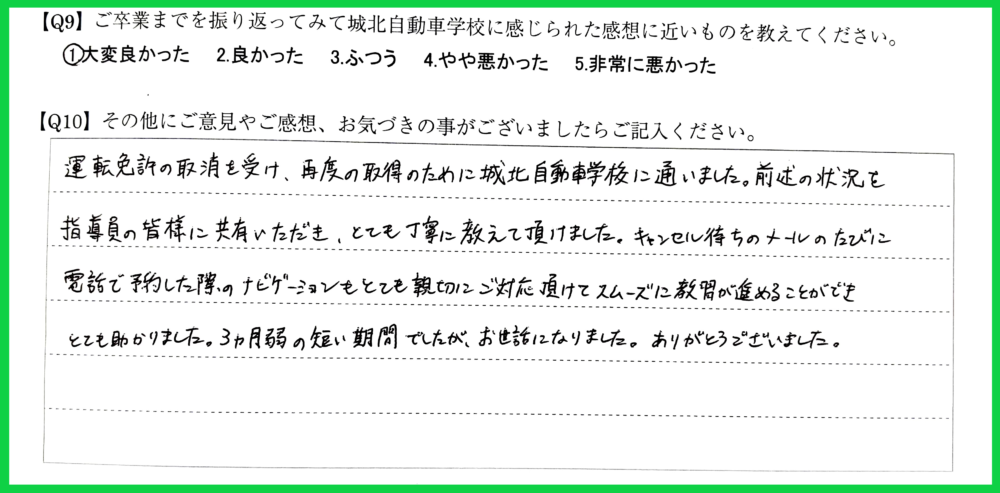 【Q9】ご卒業までを振り返ってみて城北自動車学校に感じられた感想に近いものを教えてください。
①大変良かった 2.良かった 3.ふつう 4.やや悪かった 5.非常に悪かった
【Q10】その他にご意見やご感想、お気づきの事がございましたらご記入ください。
運転免許の取消を受け、再度の取得のために城北自動車学校に通いました。前述の状況を
指導員の皆様に共有いただき、とても丁寧に教えて頂けました。キャンセル待ちのメールのたびに
電話で予約した際のナビゲーションもとても親切にご対応頂けてスムーズに教習が進めることができ
とても助かりました。3ヵ月弱の短い期間でしたが、お世話になりました。ありがとうございました。